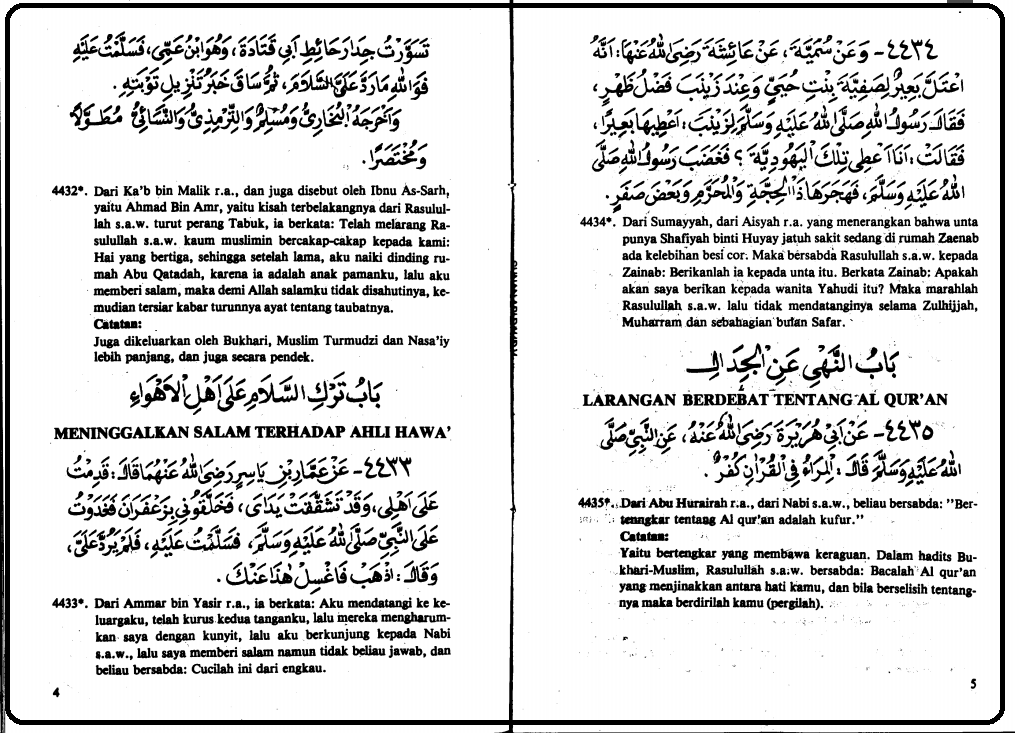 تَسَوَّرْتُ جِدَارَ حَائِطِ أَبِي قَتَادَةَ، وَهُوَ ابْنُ عَمِّي، فَسَلَّمْتُ عَلَيْهِ
فَوَاللهِ مَا رَدَّ عَلَيَّ السَّلَامَ، ثُمَّ سَاقَ خَبَرَ تَنْزِيلِ تَوْبَتِهِ.
وَأَخْرَجَهُ الْبُخَارِيُّ وَمُسْلِمٌ وَالتِّرْمِذِيُّ وَالنَّسَائِيُّ مُطَوَّلًا
وَمُخْتَصَرًا.
4432*. Dari Ka'b bin Malik r.a., dan juga disebut oleh Ibnu As-Sarh,
yaitu Ahmad Bin Amr, yaitu kisah terbelakangnya dari Rasulul-
lah s.a.w. turut perang Tabuk, ia berkata: Telah melarang Ra-
sulullah s.a.w. kaum muslimin bercakap-cakap kepada kami:
Hai yang bertiga, sehingga setelah lama, aku naiki dinding ru-
mah Abu Qatadah, karena ia adalah anak pamanku, lalu aku
memberi salam, maka demi Allah salamku tidak disahutinya, ke-
mudian tersiar kabar turunnya ayat tentang taubatnya.
Catatan:
Juga dikeluarkan oleh Bukhari, Muslim Turmudzi dan Nasa'iy
lebih panjang, dan juga secara pendek.
بَابُ تَرْكِ السَّلَامِ عَلَى أَهْلِ الْأَهْوَاءِ
MENINGGALKAN SALAM TERHADAP AHLI HAWA'
٤٤٣٣- عَنْ عَمَّارِ بْنِ يَاسِرٍ رَضِيَ اللهُ عَنْهُمَا قَالَ: قَدِمْتُ
عَلَى أَهْلِي، وَقَدْ تَشَقَّقَتْ يَدَايَ، فَخَلَّقُونِي بِزَعْفَرَانَ فَغَدَوْتُ
عَلَى النَّبِيِّ صَلَّى اللهُ عَلَيْهِ وَسَلَّمَ، فَسَلَّمْتُ عَلَيْهِ، فَلَمْ يَرُدَّ عَلَيَّ،
وَقَالَ: اذْهَبْ فَاغْسِلْ هٰذَا عَنْكَ.
4433*. Dari Ammar bin Yasir r.a., ia berkata: Aku mendatangi ke ke-
luargaku, telah kurus kedua tanganku, lalu mereka mengharum-
kan saya dengan kunyit, lalu aku berkunjung kepada Nabi
s.a.w., lalu saya memberi salam namun tidak beliau jawab, dan
beliau bersabda: Cucilah ini dari engkau.
4
٤٤٣٤- وَعَنْ سُمَيَّةَ، عَنْ عَائِشَةَ رَضِيَ اللهُ عَنْهَا: أَنَّهُ
اعْتَلَّ بَعِيرٌ لِصَفِيَّةَ بِنْتِ حُيَيٍّ وَعِنْدَ زَيْنَبَ فَضْلُ ظَهْرٍ،
فَقَالَ رَسُولُ اللهِ صَلَّى اللهُ عَلَيْهِ وَسَلَّمَ لِزَيْنَبَ: أَعْطِيهَا بَعِيرًا،
فَقَالَتْ: أَنَا أُعْطِي تِلْكَ الْيَهُودِيَّةَ؟ فَغَضِبَ رَسُولُ اللهِ صَلَّى
اللهُ عَلَيْهِ وَسَلَّمَ، فَهَجَرَهَا ذَا الْحِجَّةِ وَالْمُحَرَّمَ وَبَعْضَ صَفَرٍ.
4434*. Dari Sumayyah, dari Aisyah r.a. yang menerangkan bahwa unta
punya Shafiyah binti Huyay jatuh sakit sedang di rumah Zaenab
ada kelebihan besi cor. Maka bersabda Rasulullah s.a.w. kepada
Zainab: Berikanlah ia kepada unta itu. Berkata Zainab: Apakah
akan saya berikan kepada wanita Yahudi itu? Maka marahlah
Rasulullah s.a.w. lalu tidak mendatanginya selama Zulhijjah,
Muharram dan sebahagian bulan Safar.
بَابُ النَّهْيِ عَنِ الْجِدَالِ
LARANGAN BERDEBAT TENTANG AL QUR'AN
٤٤٣٥- عَنْ أَبِي هُرَيْرَةَ رَضِيَ اللهُ عَنْهُ، عَنِ النَّبِيِّ صَلَّى
اللهُ عَلَيْهِ وَسَلَّمَ قَالَ: الْمِرَاءُ فِي الْقُرْآنِ كُفْرٌ.
4435*. Dari Abu Hurairah r.a., dari Nabi s.a.w., beliau bersabda: "Ber-
tenngkar tentang Al qur'an adalah kufur."
Catatan:
Yaitu bertengkar yang membawa keraguan. Dalam hadits Bu-
khari-Muslim, Rasulullah s.a.w. bersabda: Bacalah Al qur'an
yang menjinakkan antara hati kamu, dan bila berselisih tentang-
nya maka berdirilah kamu (pergilah).
5